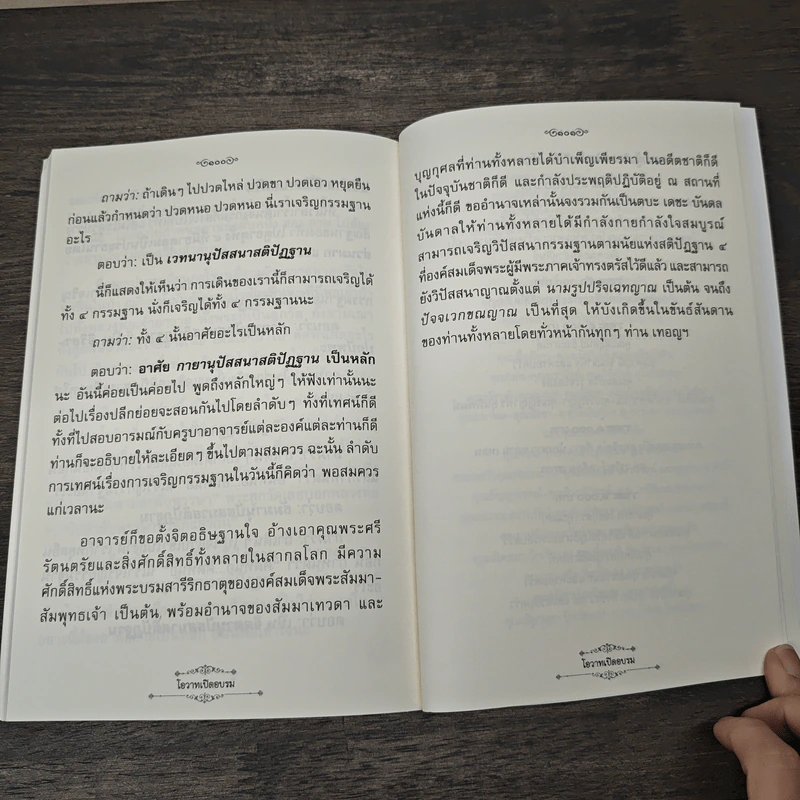 ๑๐๐
ถามว่า: ถ้าเดินๆ ไปปวดไหล่ ปวดขา ปวดเอว หยุดยืน
ก่อนแล้วกำหนดว่า ปวดหนอ ปวดหนอ นี่เราเจริญกรรมฐาน
อะไร
ตอบว่า: เป็น เวทนานุปัสสนาสติปัฏฐาน
นี่ก็แสดงให้เห็นว่า การเดินของเรานี้ก็สามารถเจริญได้
ทั้ง ๔ กรรมฐาน นั่งก็เจริญได้ทั้ง ๔ กรรมฐานนะ
ถามว่า: ทั้ง ๔ นั้นอาศัยอะไรเป็นหลัก
ตอบว่า: อาศัย กายานุปัสสนาสติปัฏฐาน เป็นหลัก
นะ อันนี้ค่อยเป็นค่อยไป พูดถึงหลักใหญ่ๆ ให้ฟังเท่านั้นนะ
ต่อไปเรื่องปลีกย่อยจะสอนกันไปโดยลำดับๆ ทั้งที่เทศน์ก็ดี
ทั้งที่ไปสอบอารมณ์กับครูบาอาจารย์แต่ละองค์แต่ละท่านก็ดี
ท่านก็จะอธิบายให้ละเอียดๆ ขึ้นไปตามสมควร ฉะนั้น ลำดับ
การเทศน์เรื่องการเจริญกรรมฐานในวันนี้ก็คิดว่า พอสมควร
แก่เวลานะ
อาจารย์ก็ขอตั้งจิตอธิษฐานใจ อ้างเอาคุณพระศรี
รัตนตรัยและสิ่งศักดิ์สิทธิ์ทั้งหลายในสากลโลก มีความ
ศักดิ์สิทธิ์แห่งพระบรมสารีริกธาตุขององค์สมเด็จพระสัมมา-
สัมพุทธเจ้า เป็นต้น พร้อมอำนาจของสัมมาเทวดา และ
โอวาทเปิดอบรม
๑๐๑
บุญกุศลที่ท่านทั้งหลายได้บำเพ็ญเพียรมา ในอดีตชาติก็ดี
ในปัจจุบันชาติก็ดี และกำลังประพฤติปฏิบัติอยู่ ณ สถานที่
แห่งนี้ก็ดี ขออำนาจเหล่านั้นจงรวมกันเป็นตบะ เดชะ บันดล
บันดาลให้ท่านทั้งหลายได้มีกำลังกายกำลังใจสมบูรณ์
สามารถเจริญวิปัสสนากรรมฐานตามนัยแห่งสติปัฏฐาน ๔
ที่องค์สมเด็จพระผู้มีพระภาคเจ้าทรงตรัสไว้ดีแล้ว และสามารถ
ยังวิปัสสนาญาณตั้งแต่ นามรูปปริจเฉทญาณ เป็นต้น จนถึง
ปัจจเวกขณญาณ เป็นที่สุด ให้บังเกิดขึ้นในขันธ์สันดาน
ของท่านทั้งหลายโดยทั่วหน้ากันทุกๆ ท่าน เทอญฯ
โอวาทเปิดอบรม